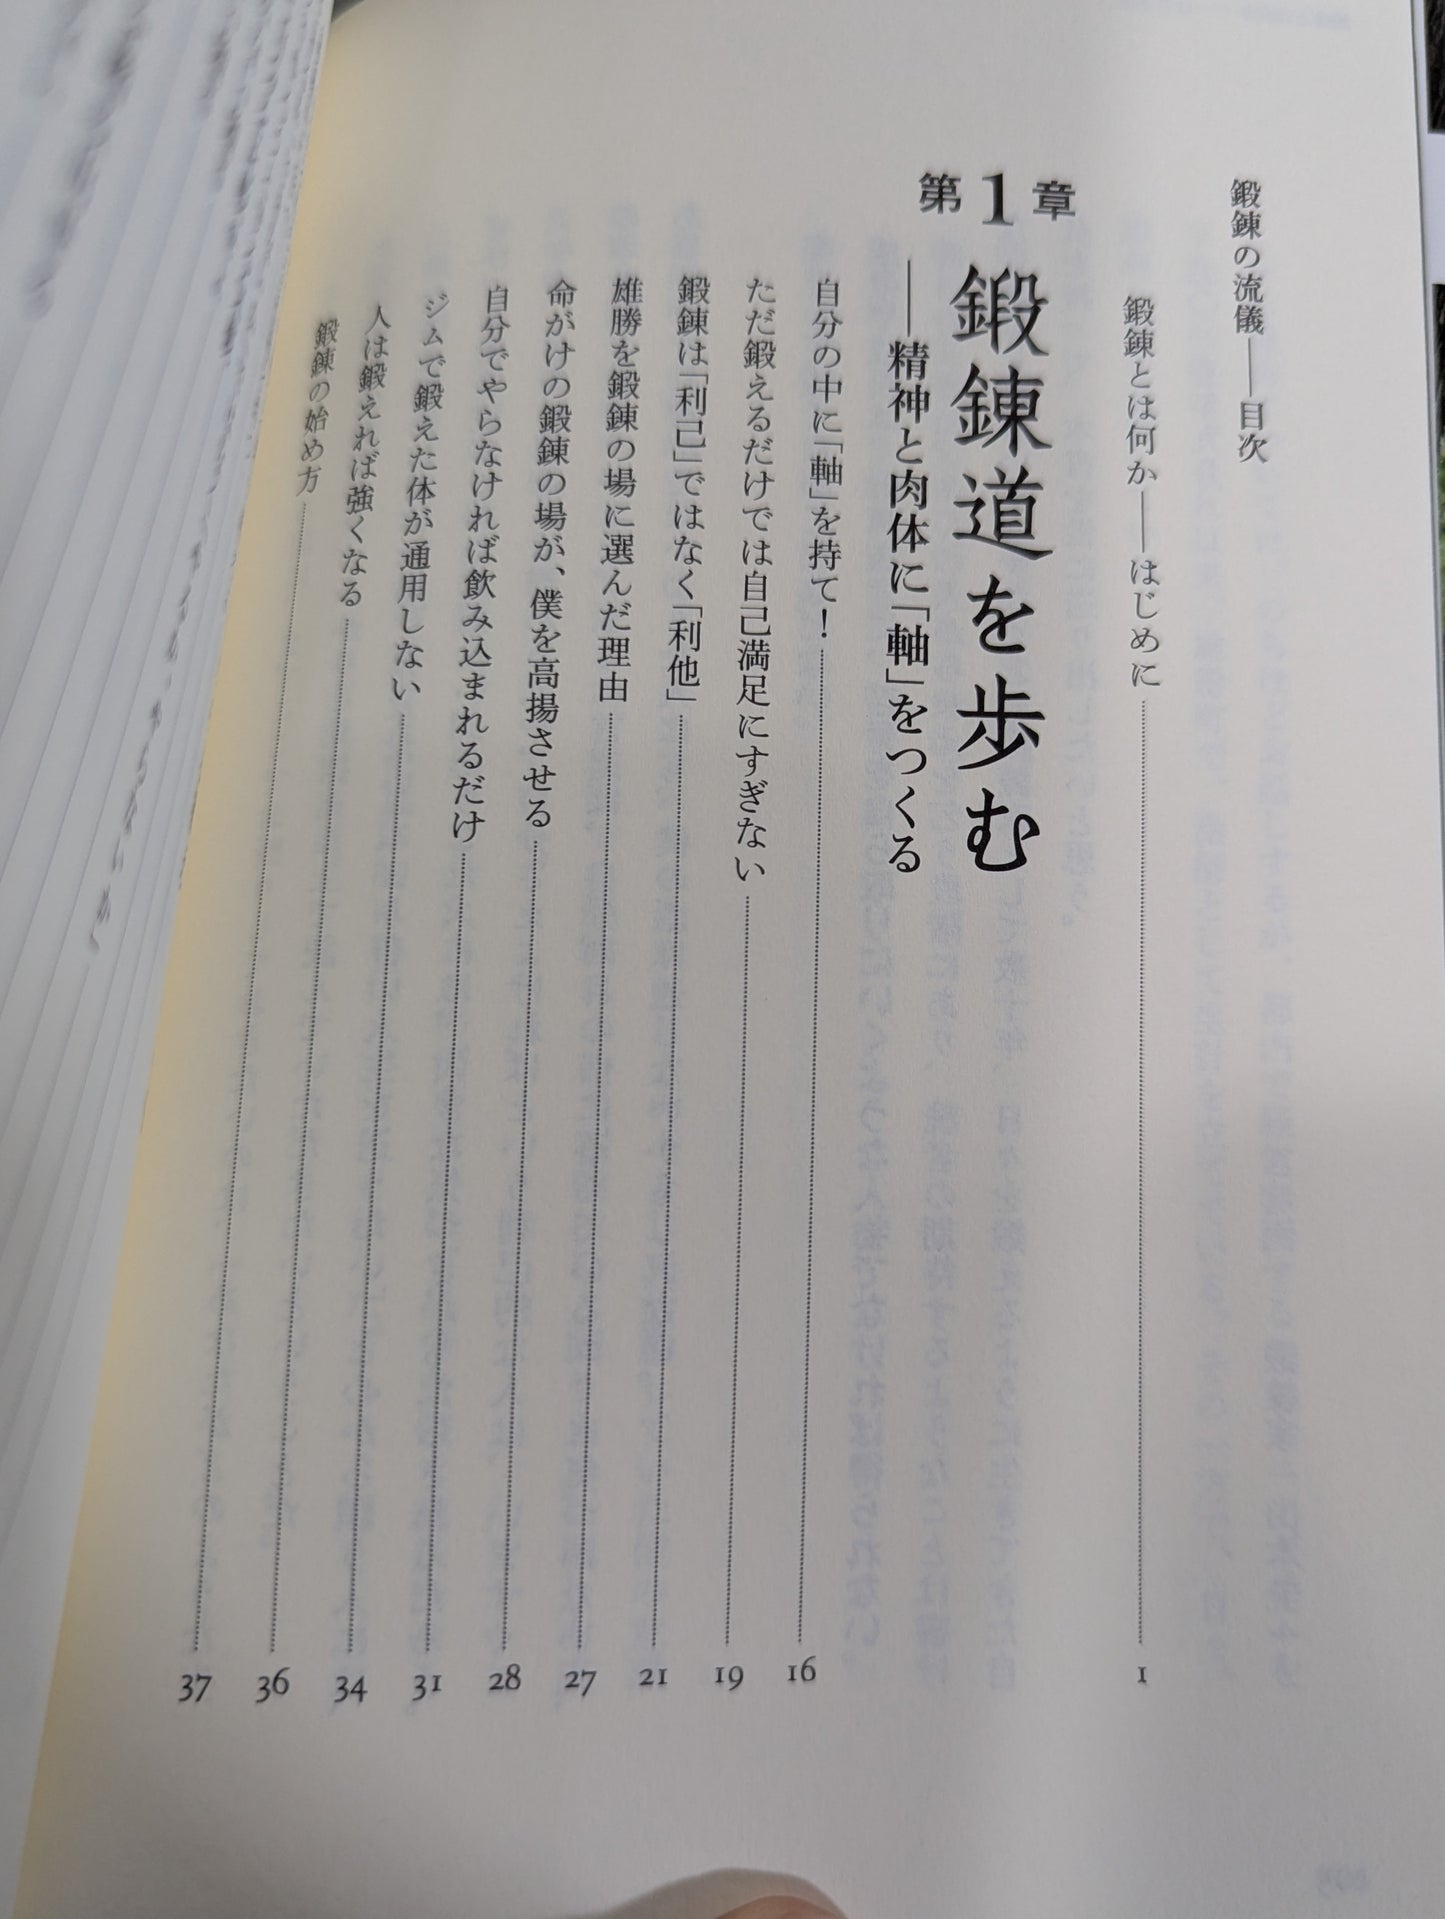 鍛錬の流儀――目次
鍛錬とは何か――はじめに 1
第1章 鍛錬道を歩む
――精神と肉体に「軸」をつくる
自分の中に「軸」を持て! 16
ただ鍛えるだけでは自己満足にすぎない 19
鍛錬は「利己」ではなく「利他」 21
雄勝を鍛錬の場に選んだ理由 27
命がけの鍛錬の場が、僕を高揚させる 28
自分でやらなければ飲み込まれるだけ 31
ジムで鍛えた体が通用しない 34
人は鍛えれば強くなる 36
鍛錬の始め方 37